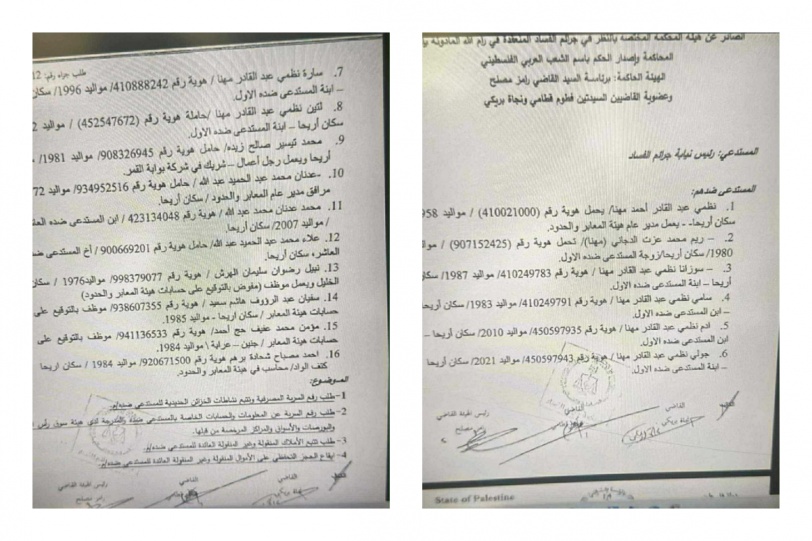 الصادر عن هيئة المحكمة المختصة بالنظر في جرائم الفساد المنعقدة في رام الله المأذونة
المحاكمة وإصدار الحكم باسم الشعب العربي الفلسطيني
الهيئة الحاكمة: برئاسة السيد القاضي رامز مصلح
وعضوية القاضيين السيدتين فطوم قطامي ونجاة بريكي
المستدعي: رئيس نيابة جرائم الفساد
المستدعى ضدهم:
1. نظمي عبد القادر أحمد مهنا/ يحمل هوية رقم (410021000) / مواليد 958
سكان أريحا- - يعمل مدير عام هيئة المعابر والحدود.
2. – ريم محمد عزت الدجاني (مهنا)/ تحمل هوية رقم (907152425) /
1980/ سكان أريحا/زوجة المستدعى ضده الاول.
3. – سوزانا نظمي عبد القادر مهنا / هوية رقم 410249783/ مواليد 1987/
أريحا – ابنة المستدعى ضده الاول.
4. سامي نظمي عبد القادر مهنا / هوية رقم 410249791/ مواليد 1983/ سكان
– ابن المستدعى ضده الاول.
5. ادم نظمي عبد القادر مهنا / هوية رقم 450597935/ مواليد 2010/ سكان أريحا –
ابن المستدعى ضده الاول.
6. جولي نظمي عبد القادر مهنا / هوية رقم 450597943/ مواليد 2021/ سكان أريحا
– ابنة المستدعى ضده الاول.
القاضي القاضي رئيس الهيئة القاضي
State of Palestine
طلب جزاء رقم: 12
7. سارة نظمي عبد القادر مهنا / هوية رقم 410888242/ مواليد 1996/
– ابنة المستدعى ضده الاول.
8. لتين نظمي عبد القادر مهنا /حاملة هوية رقم (452547672) / مواليد 2
سكان أريحا – ابنة المستدعى ضده الاول.
9. محمد تيسير صالح زيده/ حامل هوية رقم 908326945/ مواليد 1981/
أريحا ويعمل رجل أعمال – شريك في شركة بوابة القمر.
10. -عدنان محمد عبد الحميد عبد الله / حامل هوية رقم 934952516/ مواليد 72
مرافق مدير عام المعابر والحدود / سكان أريحا.
11. محمد عدنان محمد عبد الله / هوية رقم 423134048 / ابن المستدعى ضده
/ مواليد 2007/ سكان أريحا.
12. علاء محمد عبد الحميد عبد الله/ حامل هوية رقم 900669201/ أخ المستدعى
العاشر، سكان أريحا.
13. نبيل رضوان سليمان الهرش / هوية رقم 998379077/ مواليد1976 /
الخليل ويعمل موظف (مفوض بالتوقيع على حسابات هيئة المعابر والحدود)
14. سفيان عبد الرؤوف هاشم سعيد / هوية رقم 938607355/ موظف بالتوقيع على
حسابات هيئة المعابر / سكان اريحا - مواليد 1985.
15. مؤمن محمد عفيف حج أحمد/ هوية رقم 941136533/ موظف بالتوقيع على
حسابات هيئة المعابر / جنين – عرابة \ مواليد 1984.
16. احمد مصباح شحادة برهم هوية رقم 920671500/ مواليد 1984 / سكان اريحا
كتف الواد/ محاسب في هيئة المعابر والحدود.
الموضوع:
1-طلب رفع السرية المصرفية وتتبع نشاطات الخزائن الحديدية للمستدعى ضده/م.
2- طلب رفع السرية عن المعلومات والحسابات الخاصة بالمستدعى ضده والمدرجة لدى هيئة سوق رأس
والبورصات والأسواق والمراكز المرخصة من قبلها.
3- طلب تتبع الأملاك المنقولة وغير المنقولة العائدة للمستدعى ضده/م.
4- ايقاع الحجز التحفظي على الأموال المنقولة وغير المنقولة العائدة للمستدعى ضده/م.
القاضي القاضي رئيس الهيئة القاضي